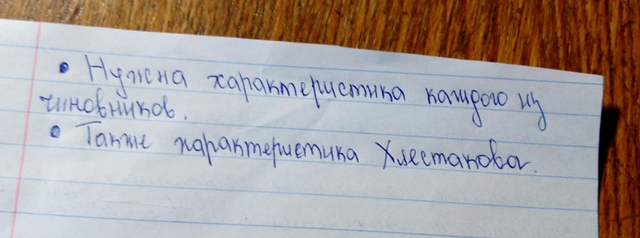 • Нужна характеристика каждого из
чиновников.
• Также характеристика Хлестакова.